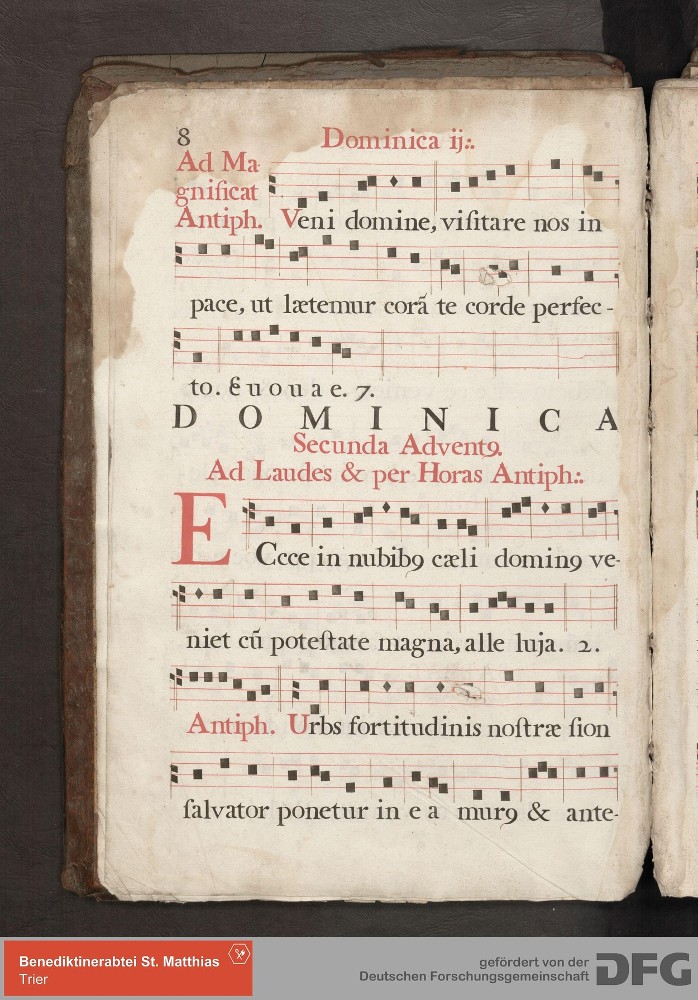 8
Dominica ij:.
Ad Ma-
gnificat
Antiph. Veni domine, viſitare nos in
pace, ut lætemur corã te corde perfec-
to. e u o u a e. 7.
DOMINICA
Secunda Advent9.
Ad Laudes & per Horas Antiph:.
ECcce in nubib9 cæli domin9 ve-
niet cũ poteſtate magna, alle luja. 2.
Antiph. Urbs fortitudinis noſtræ ſion
ſalvator ponetur in e a mur9 & ante-
Benediktinerabtei St. Matthias
Trier
gefördert von der
Deutschen Forschungsgemeinschaft
DFG